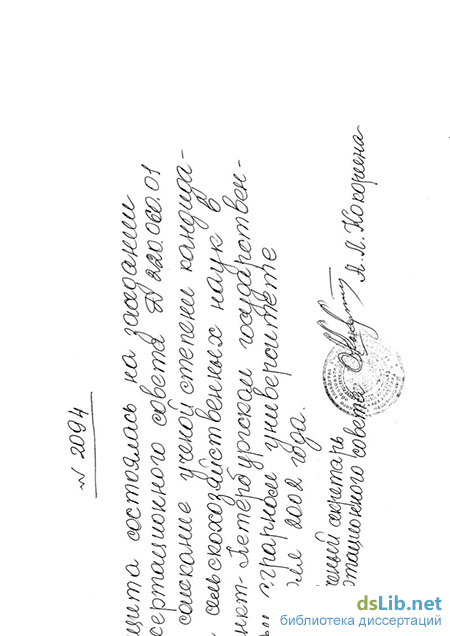 N 2094
щита состоялась на заседании
сертационного совета Д 220.060.01
соискание ученой степени кандида-
сельскохозяйственных наук в
нкт-Петербургском государствен-
аграрном университете
2002 года.
ченый секретарь
тационного совета А.Л. Кокорина
dsLib.net
библиотека диссертаций